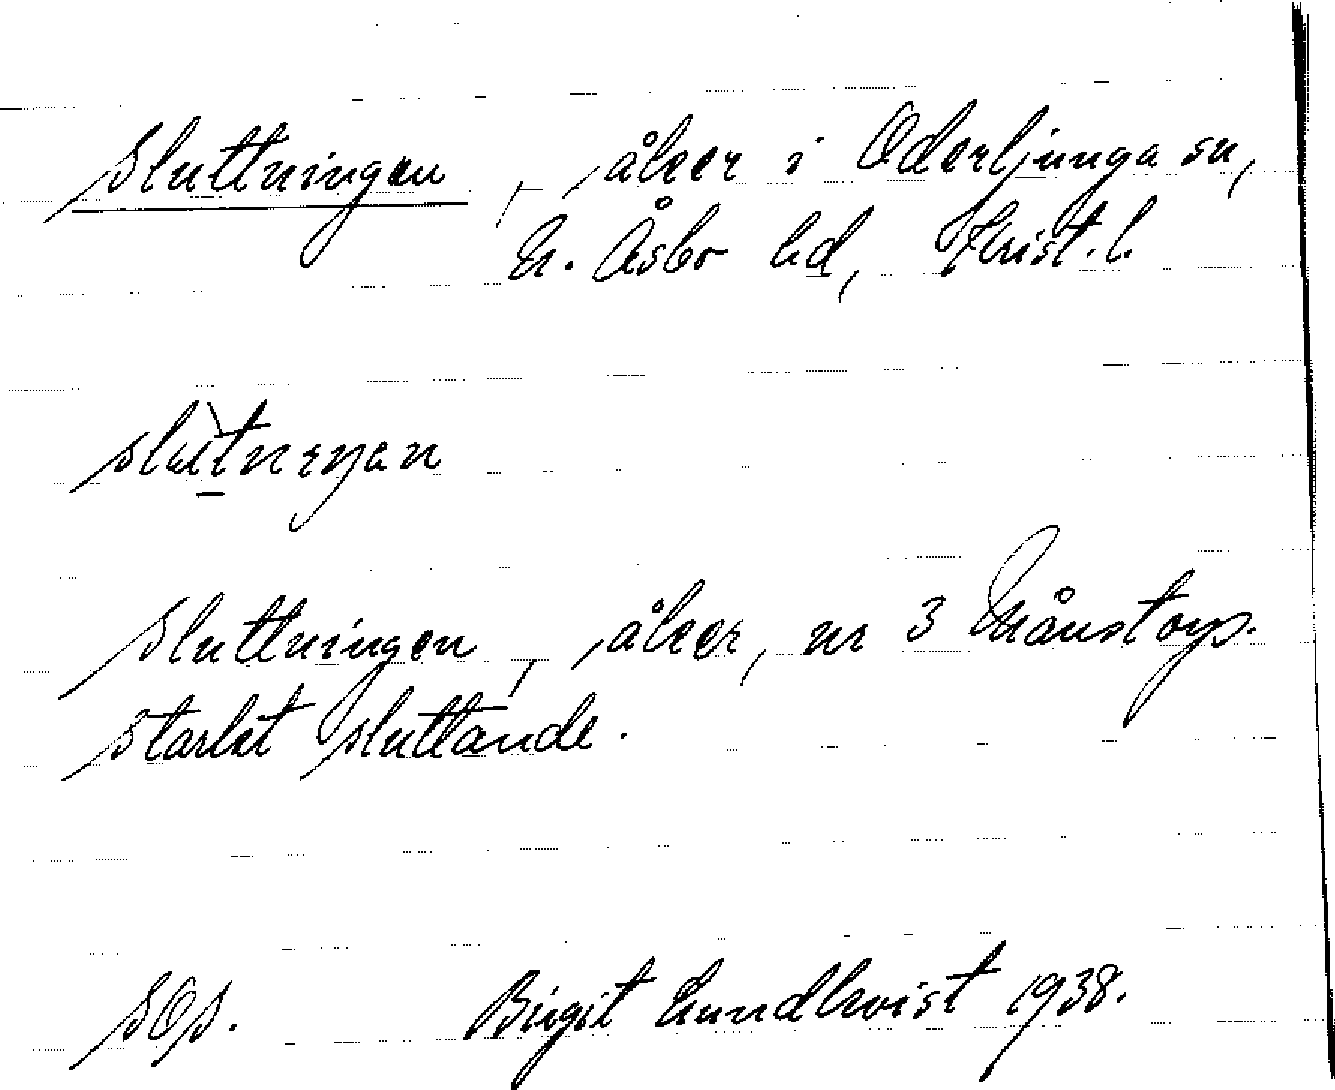 Sluttningen, åker i Oderljunga sn,
N. Åsbo hd, Krist. l.
Sluttningen, åker, nr 3 Månstorp.
Starkt sluttande.
SOS. Birgit Lundkvist 1938.